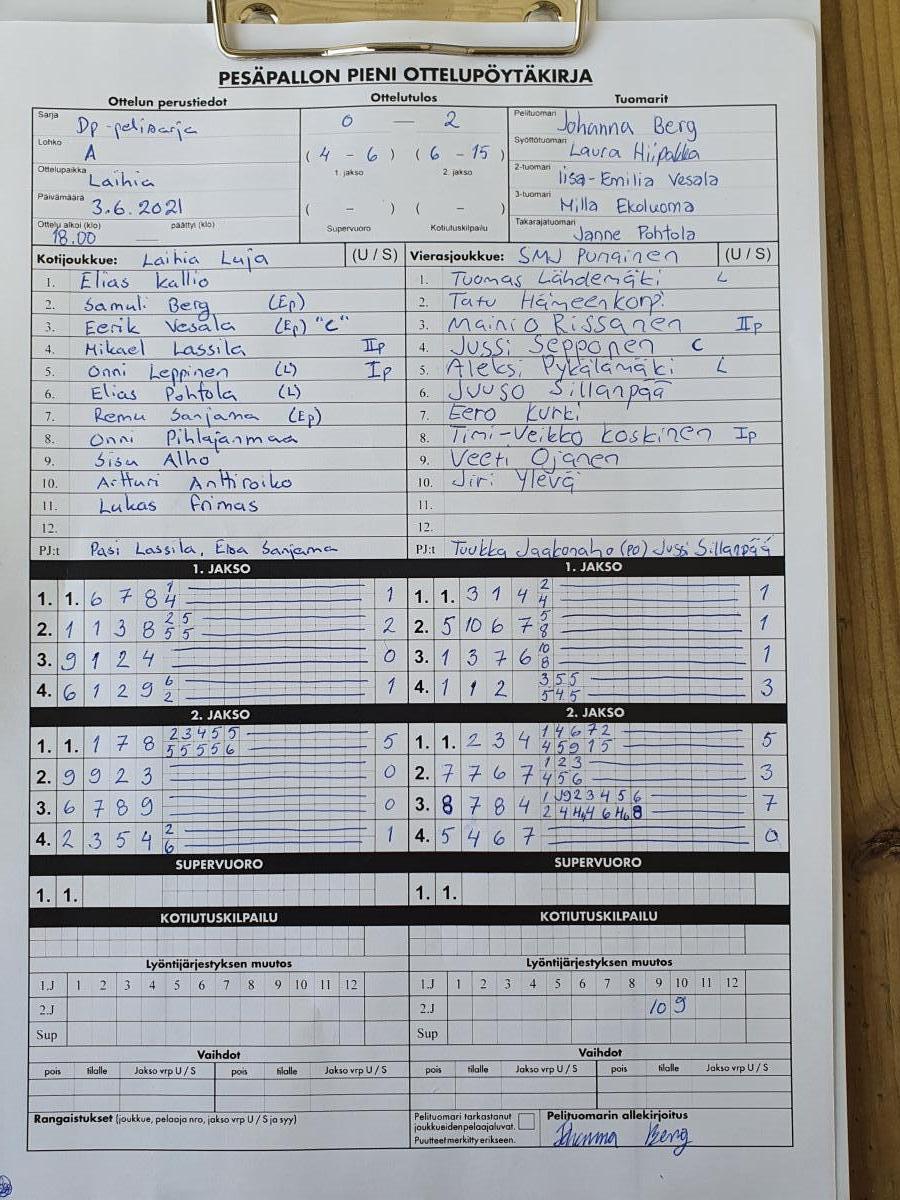 PESÄPALLON PIENI OTTELUPÖYTÄKIRJA
Ottelun perustiedot Ottelutulos Tuomarit
Sarja Dp-pelisarja 0 — 2 Pelituomari Johanna Berg
Lohko A ( 4 - 6 ) ( 6 - 15 ) Syöttötuomari Laura Hiipakka
1. jakso 2. jakso
Ottelupaikka Laihia 2-tuomari Iisa-Emilia Vesala
Päivämäärä 3.6.2021 ( - ) ( - ) 3-tuomari Milla Ekoluoma
Ottelu alkoi (klo) 18.00 päättyi (klo) — Supervuoro Kotiutuskilpailu Takarajatuomari Janne Pohtola
Kotijoukkue: Laihia Luja (U / S) Vierasjoukkue: SMJ Punainen (U / S)
1. Elias Kallio 1. Tuomas Lähdemäki L
2. Samuli Berg (Ep) 2. Tatu Hämeenkorpi
3. Eerik Vesala (Ep) "C" 3. Mainio Rissanen IIp
4. Mikael Lassila IIp 4. Jussi Sepponen C
5. Onni Leppinen (L) Ip 5. Aleksi Pykälämäki L
6. Elias Pohtola (L) 6. Juuso Sillanpää
7. Remu Sanjama (Ep) 7. Eero Kurki
8. Onni Pihlajanmaa 8. Timi-Veikko Koskinen Ip
9. Sisu Alho 9. Veeti Ojanen
10. Artturi Anttiroiko 10. Jiri Ylevä
11. Lukas Frimas 11.
12. 12.
PJ:t Pasi Lassila, Elsa Sanjama PJ:t Tuukka Jaakonaho (PO) Jussi Sillanpää
1. JAKSO 1. JAKSO
1. 1. 6 7 8 1 4 1 1. 1. 3 1 4 2 4 1
2. 1 1 3 8 2 5 5 5 2 2. 5 10 6 7 5 8 1
3. 9 1 2 4 0 3. 1 3 7 6 10 8 1
4. 6 1 2 9 6 2 1 4. 1 1 2 3 5 5 5 4 5 3
2. JAKSO 2. JAKSO
1. 1. 1 7 8 2 3 4 5 5 5 5 5 5 6 5 1. 1. 2 3 4 1 4 6 7 2 4 5 9 1 5 5
2. 9 9 2 3 0 2. 7 7 6 7 1 2 3 4 5 6 3
3. 6 7 8 9 0 3. 8 7 8 4 7
4. 2 3 5 4 2 6 1 4. 5 4 6 7 0
SUPERVUORO SUPERVUORO
1. 1. 1. 1.
KOTIUTUSKILPAILU KOTIUTUSKILPAILU
Lyöntijärjestyksen muutos Lyöntijärjestyksen muutos
1.J 1 2 3 4 5 6 7 8 9 10 11 12 1.J 1 2 3 4 5 6 7 8 9 10 11 12
2.J 2.J 10 9
Sup Sup
Vaihdot Vaihdot
pois tilalle Jakso vrp U / S pois tilalle Jakso vrp U / S pois tilalle Jakso vrp U / S pois tilalle Jakso vrp U / S
Rangaistukset (joukkue, pelaaja nro, jakso vrp U / S ja syy) Pelituomari tarkastanut joukkueiden pelaajaluvat. Puutteet merkitty erikseen. Pelituomarin allekirjoitus
Johanna Berg